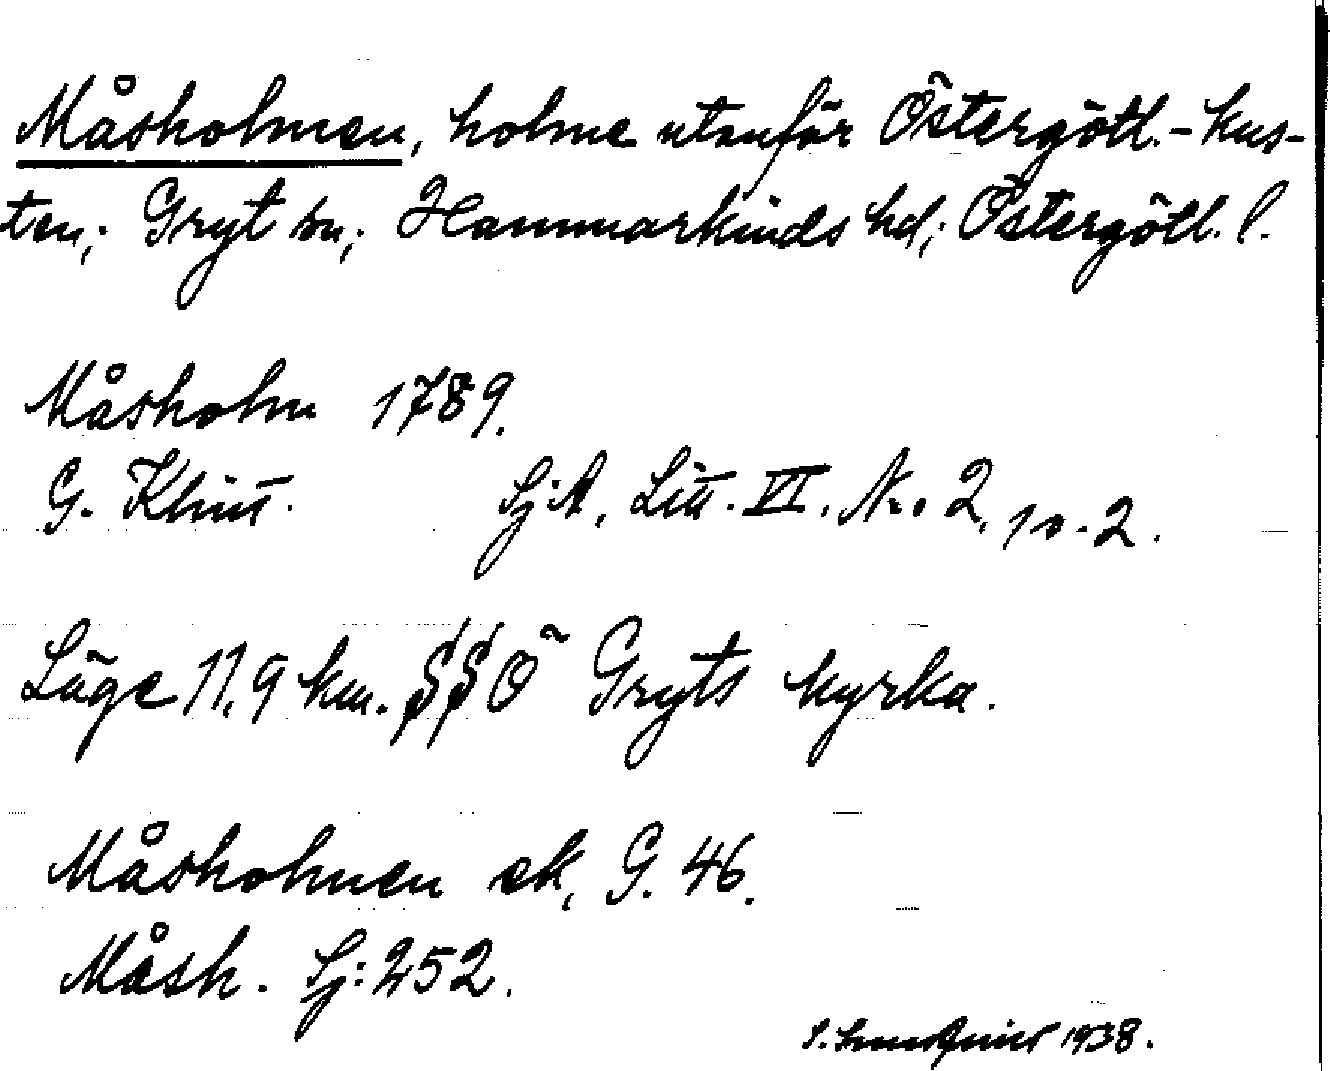 Måsholmen, holme utanför Östergötl.-kus-
ten; Gryt sn; Hammarkinds hd; Östergötl. l.
Måsholm 1789.
G. Klint. SjA, Litt. VI. Nr. 2, 10.2.
Läge 11,9 km. SSÖ Gryts kyrka.
Måsholmen ek, G. 46.
Måsh. Sj: 252.
S. 1938.